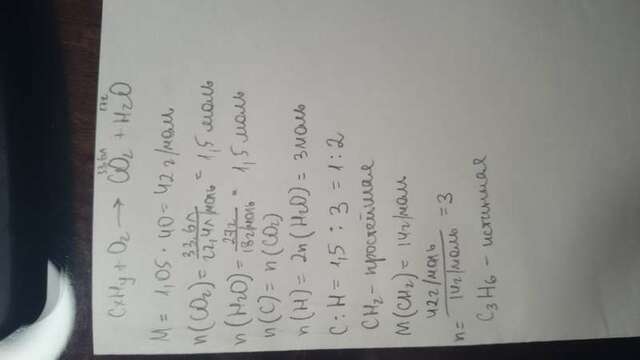 33,6л 27г
CxHy + O2 → CO2 + H2O
M = 1,05 · 40 = 42 г/моль
n(CO2) = 33,6л / 22,4л/моль = 1,5 моль
n(H2O) = 27г / 18г/моль = 1,5 моль
n(C) = n(CO2)
n(H) = 2n(H2O) = 3моль
C : H = 1,5 : 3 = 1 : 2
CH2 - простейшая
M(CH2) = 14г/моль
n = 42г/моль / 14г/моль = 3
C3H6 - истинная